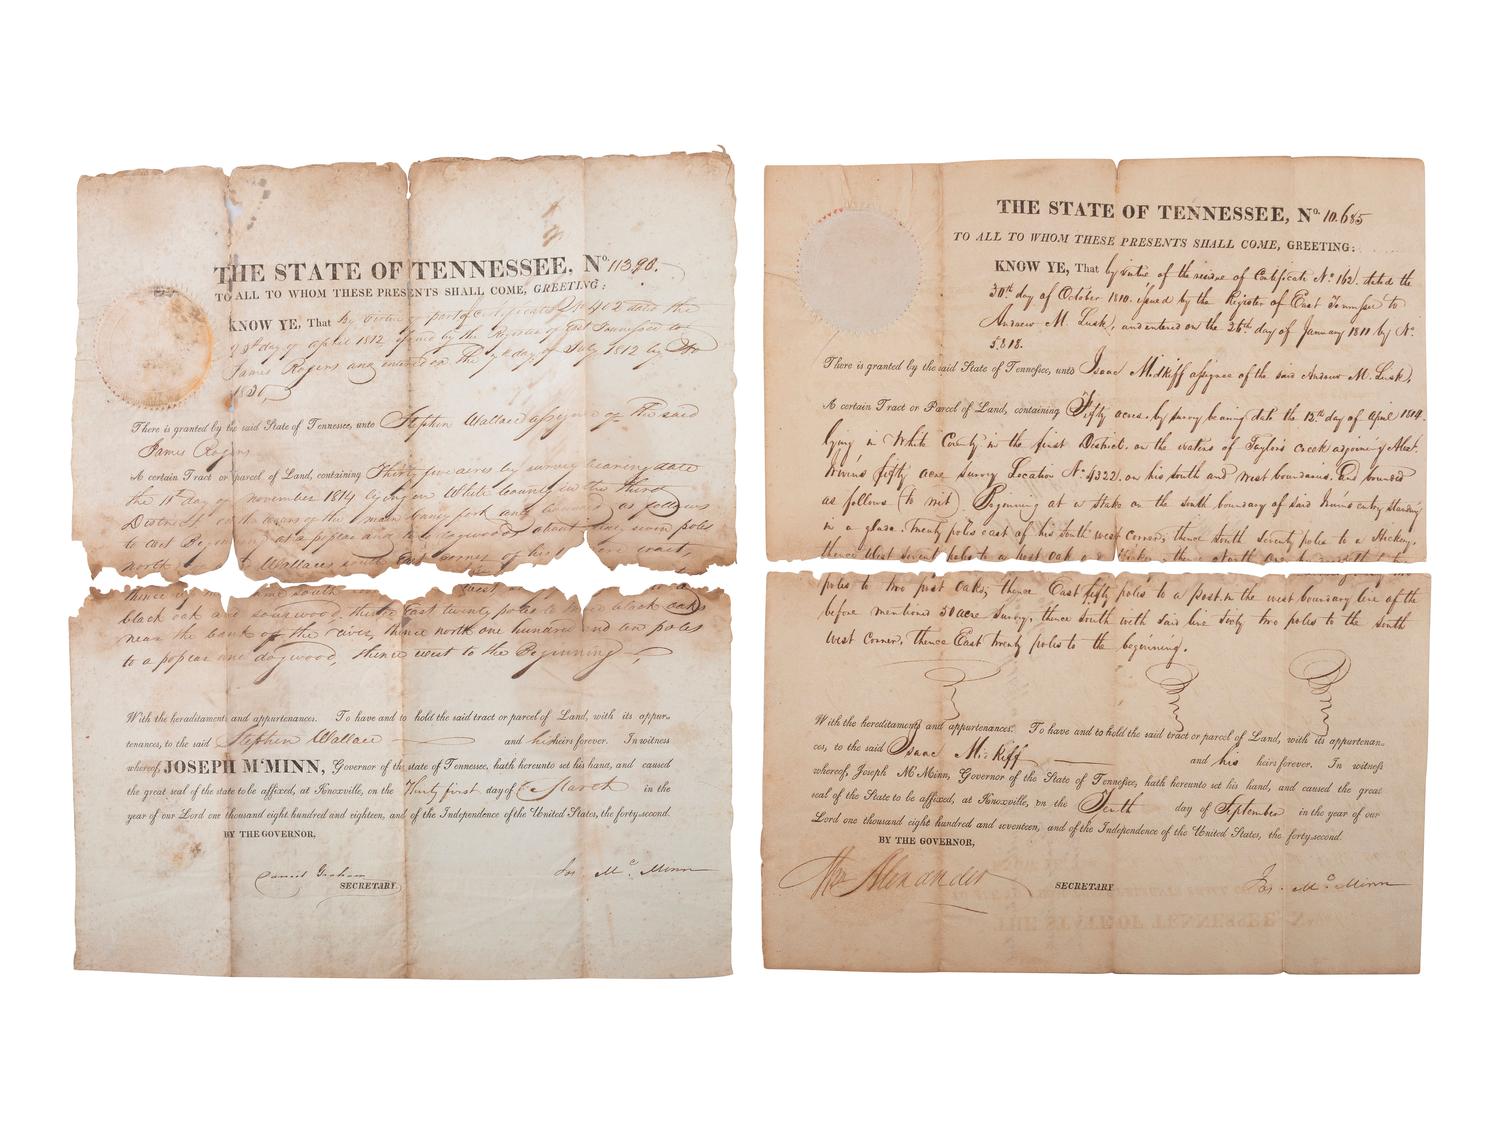 THE STATE OF TENNESSEE, No. 11390.
TO ALL TO WHOM THESE PRESENTS SHALL COME, GREETING:
KNOW YE, That by virtue of part of Certificate No 402 dated the
day of April 1812 issued by the Register of East Tennessee to
James Rogers and entered on the day of July 1812 by No
There is granted by the said State of Tennessee, unto Stephen Wallace assignee of the said
James Rogers
A certain Tract or parcel of Land, containing Thirty five acres by survey bearing date
the 11th day of November 1814 lying in White County in the third
District on the waters of the main caney fork and bounded as follows
to wit Beginning at a poplar and dogwood about seven poles
north Wallaces south east corner of west,
thence south
black oak and sourwood, thence East twenty poles to black oaks
near the bank of the river, thence north one hundred and ten poles
to a poplar and dogwood, thence west to the Beginning
With the hereditaments and appurtenances. To have and to hold the said tract or parcel of Land, with its appur-
tenances, to the said Stephen Wallace and his heirs forever. In witness
whereof, JOSEPH M'MINN, Governor of the state of Tennessee, hath hereunto set his hand, and caused
the great seal of the state to be affixed, at Knoxville, on the Thirty first day of March in the
year of our Lord one thousand eight hundred and eighteen, and of the Independence of the United States, the forty-second.
BY THE GOVERNOR,
Daniel Graham Jos. Mc. Minn
SECRETARY
THE STATE OF TENNESSEE, No. 10.685
TO ALL TO WHOM THESE PRESENTS SHALL COME, GREETING:
KNOW YE, That by virtue of the residue of Certificate No 162. dated the
30th day of October 1810. issued by the Register of East Tennessee to
Andrew M. Lusk, and entered on the 26th day of January 1811 by No
5818.
There is granted by the said State of Tennessee, unto Isaac Midkiff assignee of the said Andrew M. Lusk,
A certain Tract or Parcel of Land, containing Fifty acres. by survey bearing date the 12th day of April 1814.
lying in White County in the first District. on the waters of Taylors Creek adjoining
fifty acre survey Location No 4322. on his south and west boundaries. And bounded
as follows (to wit) Beginning at a stake on the south boundary of said entry standing
in a glade. twenty poles east of his south west corner, thence south seventy poles to a Hickory,
thence West seventy poles to a post oak thence North
poles to two post oaks, thence East fifty poles to a post in the west boundary line of the
before mentioned 50 acre survey, thence south with said line sixty two poles to the south
west corner, thence East twenty poles to the beginning.
With the hereditaments and appurtenances. To have and to hold the said tract or parcel of Land, with its appurtenan-
ces, to the said Isaac Mc.kiff and his heirs forever. In witness
whereof, Joseph M'Minn, Governor of the State of Tennessee, hath hereunto set his hand, and caused the great
seal of the State to be affixed, at Knoxville, on the Tenth day of September in the year of our
Lord one thousand eight hundred and seventeen, and of the Independence of the United States, the forty-second.
BY THE GOVERNOR,
Wm Alexander SECRETARY Jos. Mc. Minn